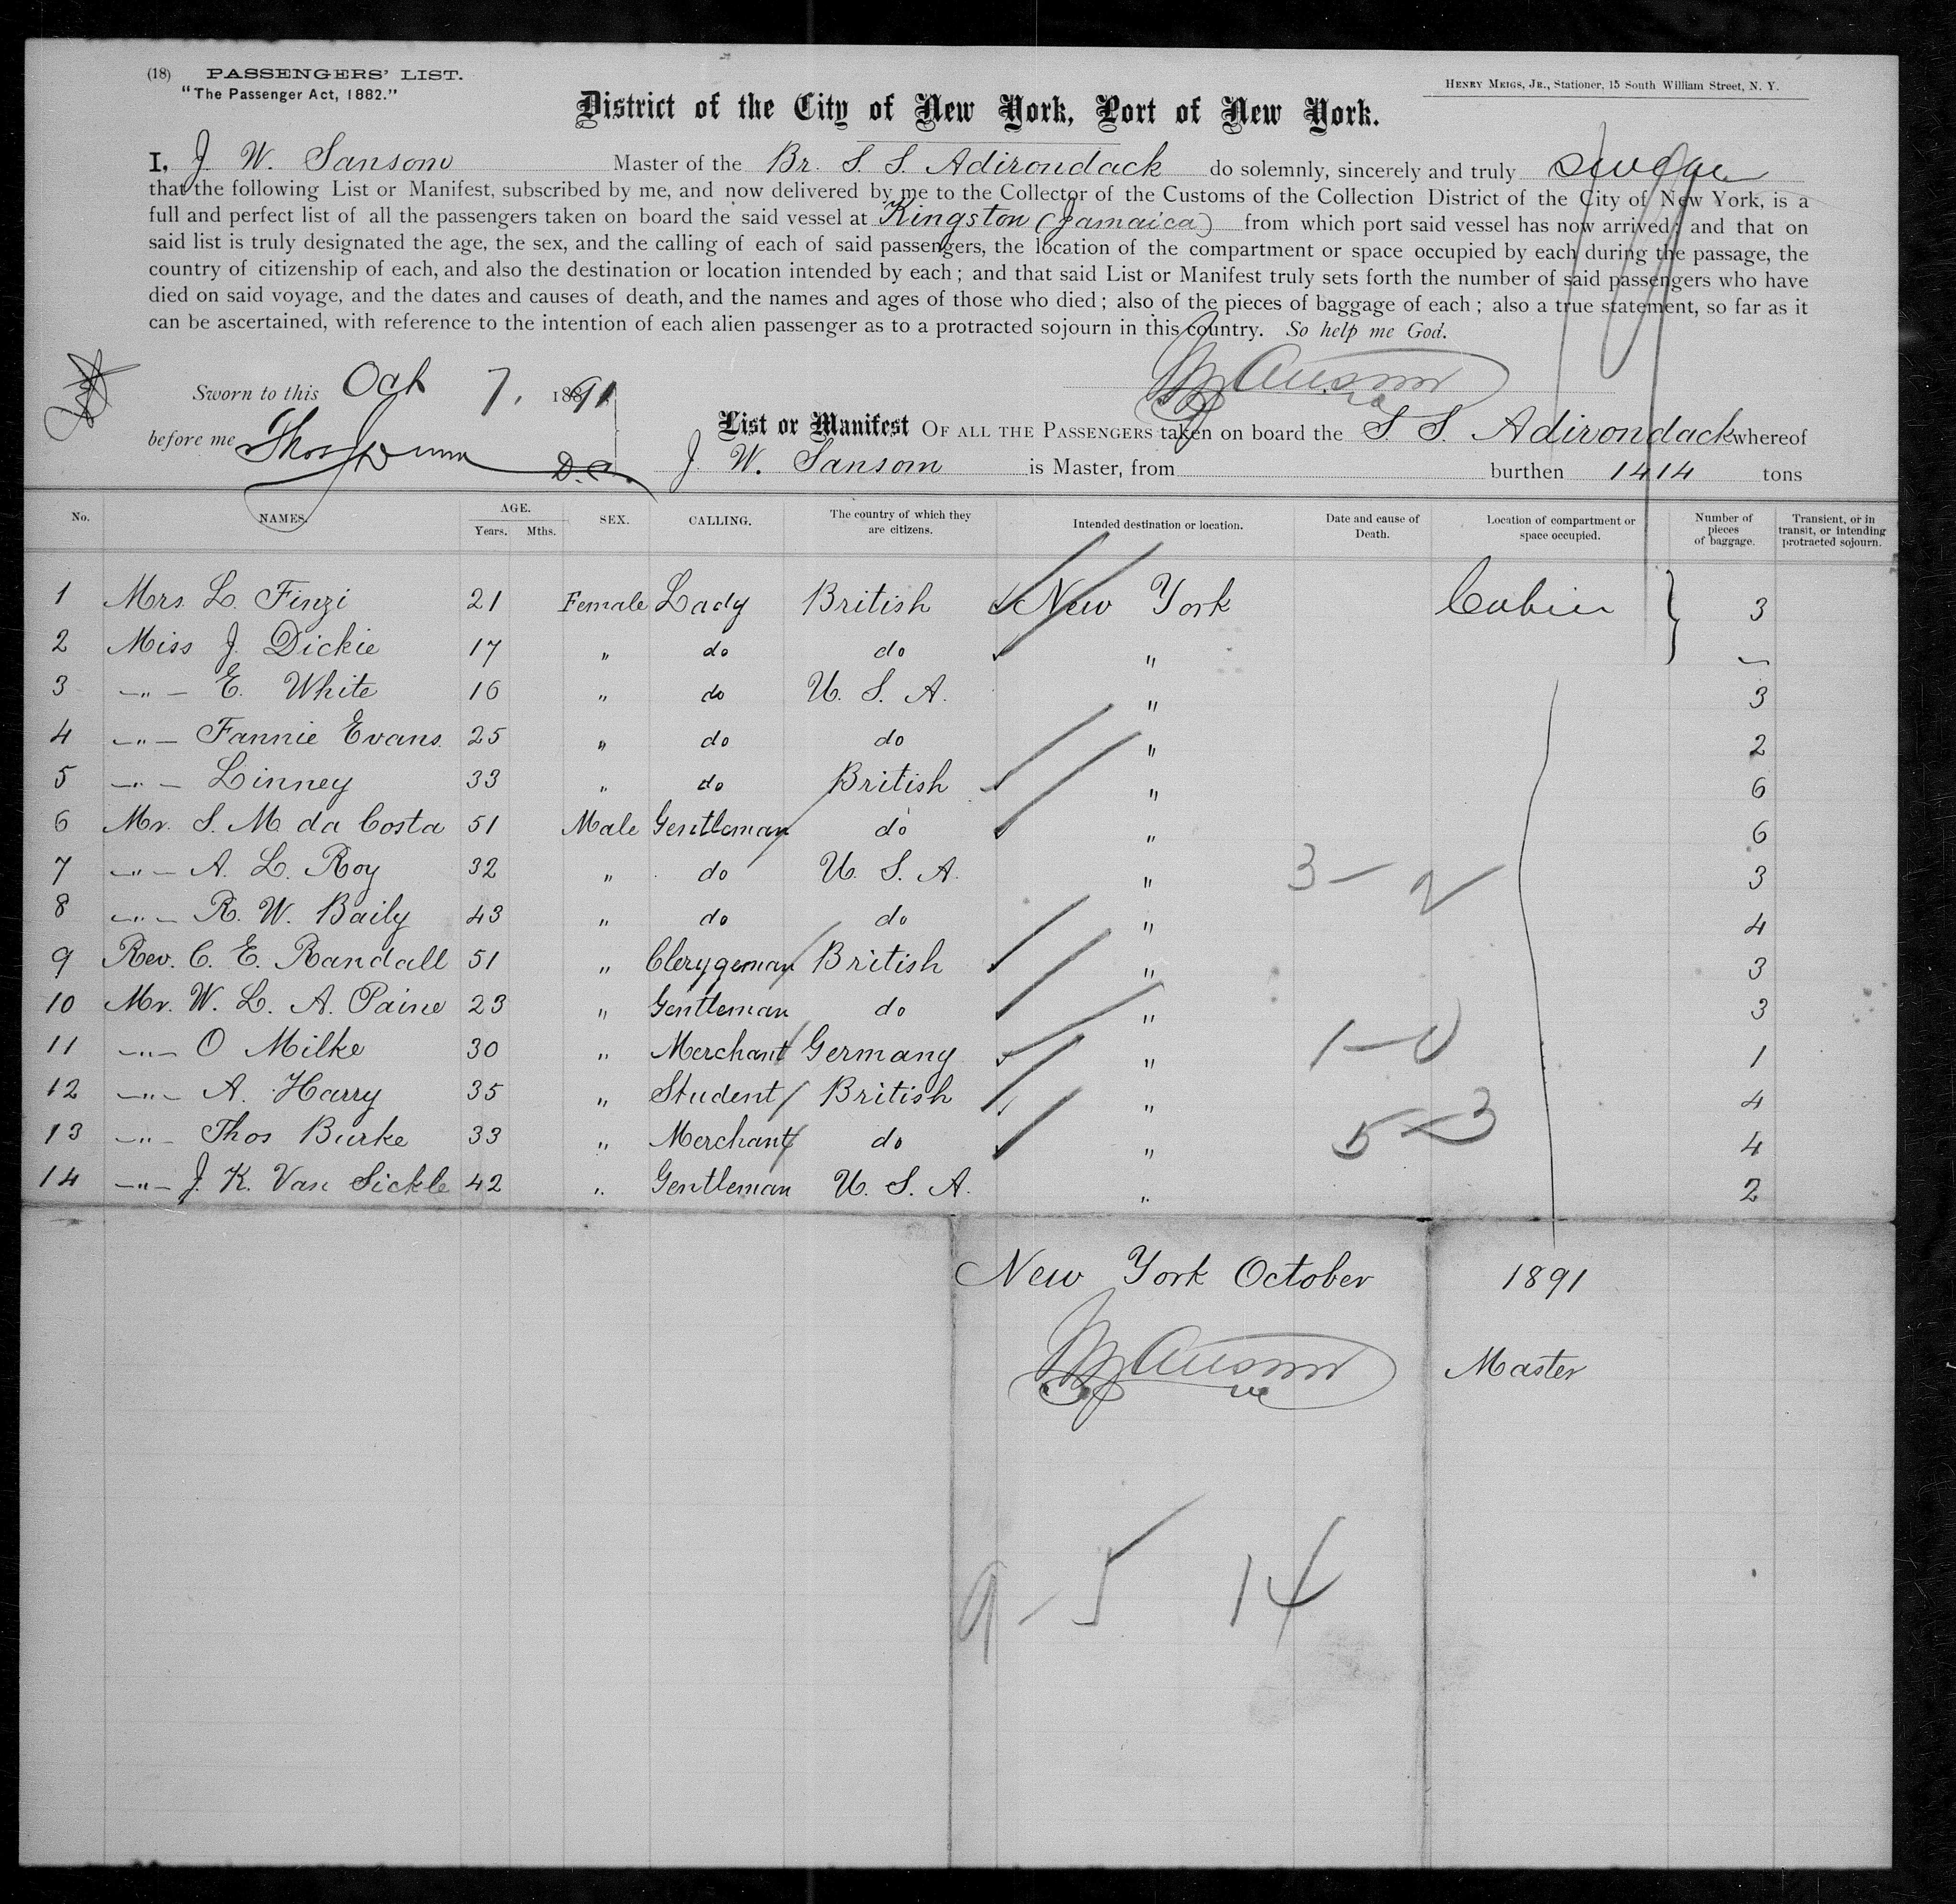 (18) PASSENGERS' LIST.
"The Passenger Act, 1882."
HENRY MEIGS, JR., Stationer, 15 South William Street, N. Y.
District of the City of New York, Port of New York.
I, J. W. Sansom Master of the Br. S. S. Adirondack do solemnly, sincerely and truly swear
that the following List or Manifest, subscribed by me, and now delivered by me to the Collector of the Customs of the Collection District of the City of New York, is a
full and perfect list of all the passengers taken on board the said vessel at Kingston (Jamaica) from which port said vessel has now arrived; and that on
said list is truly designated the age, the sex, and the calling of each of said passengers, the location of the compartment or space occupied by each during the passage, the
country of citizenship of each, and also the destination or location intended by each; and that said List or Manifest truly sets forth the number of said passengers who have
died on said voyage, and the dates and causes of death, and the names and ages of those who died; also of the pieces of baggage of each; also a true statement, so far as it
can be ascertained, with reference to the intention of each alien passenger as to a protracted sojourn in this country. So help me God.
Sworn to this Oct 7, 1891
J W Sansom
before me Thos Dunn D.C.
List or Manifest OF ALL THE PASSENGERS taken on board the S. S. Adirondack whereof
J. W. Sansom is Master, from burthen 1414 tons
No. NAMES. AGE. Years. Mths. SEX. CALLING. The country of which they are citizens. Intended destination or location. Date and cause of Death. Location of compartment or space occupied. Number of pieces of baggage. Transient, or in transit, or intending protracted sojourn.
1 Mrs. L. Finzi 21 Female Lady British New York Cabin 3
2 Miss J. Dickie 17 " do do " —
3 —"— E. White 16 " do U. S. A. " 3
4 —"— Fannie Evans 25 " do do " 2
5 —"— Linney 33 " do British " 6
6 Mr. S. M da Costa 51 Male Gentleman do " 6
7 —"— A. L. Roy 32 " do U. S. A. " 3 — 2 3
8 —"— R. W. Baily 43 " do do " 4
9 Rev. C. E. Randall 51 " Clerygeman British " 3
10 Mr. W. L. A. Paine 23 " Gentleman do " 3
11 —"— O Milke 30 " Merchant Germany " 1—0 1
12 —"— A. Harry 35 " Student British " 4
13 —"— Thos Burke 33 " Merchant do " 5—3 4
14 —"— J. K. Van Sickle 42 " Gentleman U. S. A. " 2
New York October 1891
J W Sansom Master
9 - 5 14